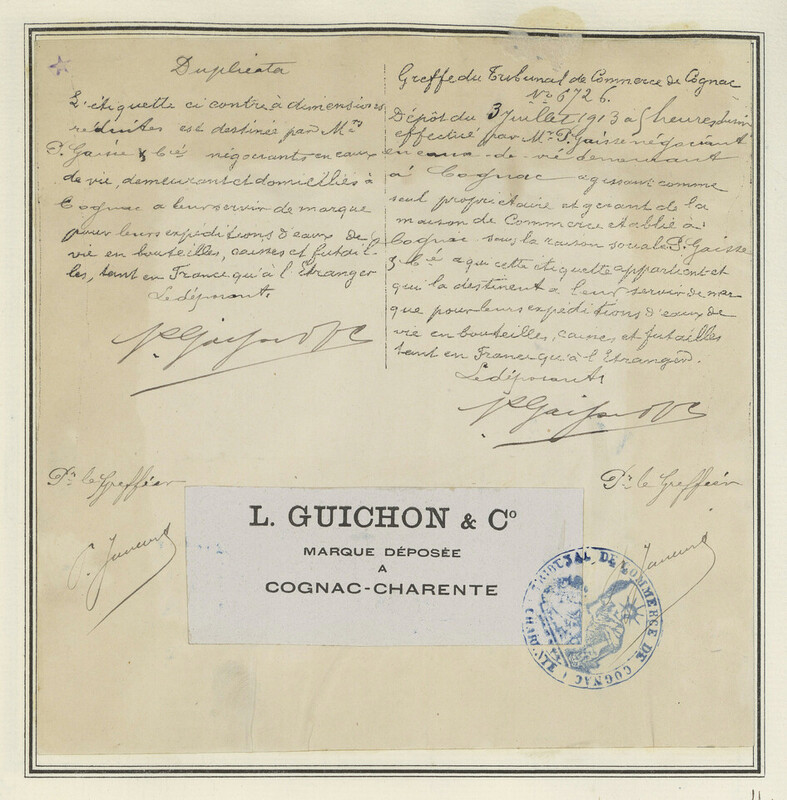 Duplicata
L'étiquette ci contre à dimensions
réduites est destinée par Mrs
P. Gaisse & Cie négociants en eaux
de vie, demeurant et domiciliés à
Cognac a leur servir de marque
pour leurs expéditions d'eaux de
vie en bouteilles, caisses et futail-
les, tant en France qu'à l'Etranger
Le déposant.
Greffe du Tribunal de Commerce de Cognac
No 6726.
Dépôt du 3 Juillet 1913 à 5 heures du soir
effectué par Mr P. Gaisse négociant
en eaux-de-vie demeurant
à Cognac agissant comme
seul propriétaire et gérant de la
maison de Commerce établie à
Cognac sous la raison sociale P. Gaisse
& Cie a qui cette étiquette appartient et
qui la destinent a leur servir de mar
que pour leurs expéditions d'eaux de
vie en bouteilles, caisses et futailles
tant en France qu'à l'Etranger.
Le déposant
Pr le Greffier
Pr le Greffier
L. GUICHON & Co
MARQUE DÉPOSÉE
A
COGNAC-CHARENTE
TRIBUNAL DE COMMERCE DE COGNAC (CHARENTE)